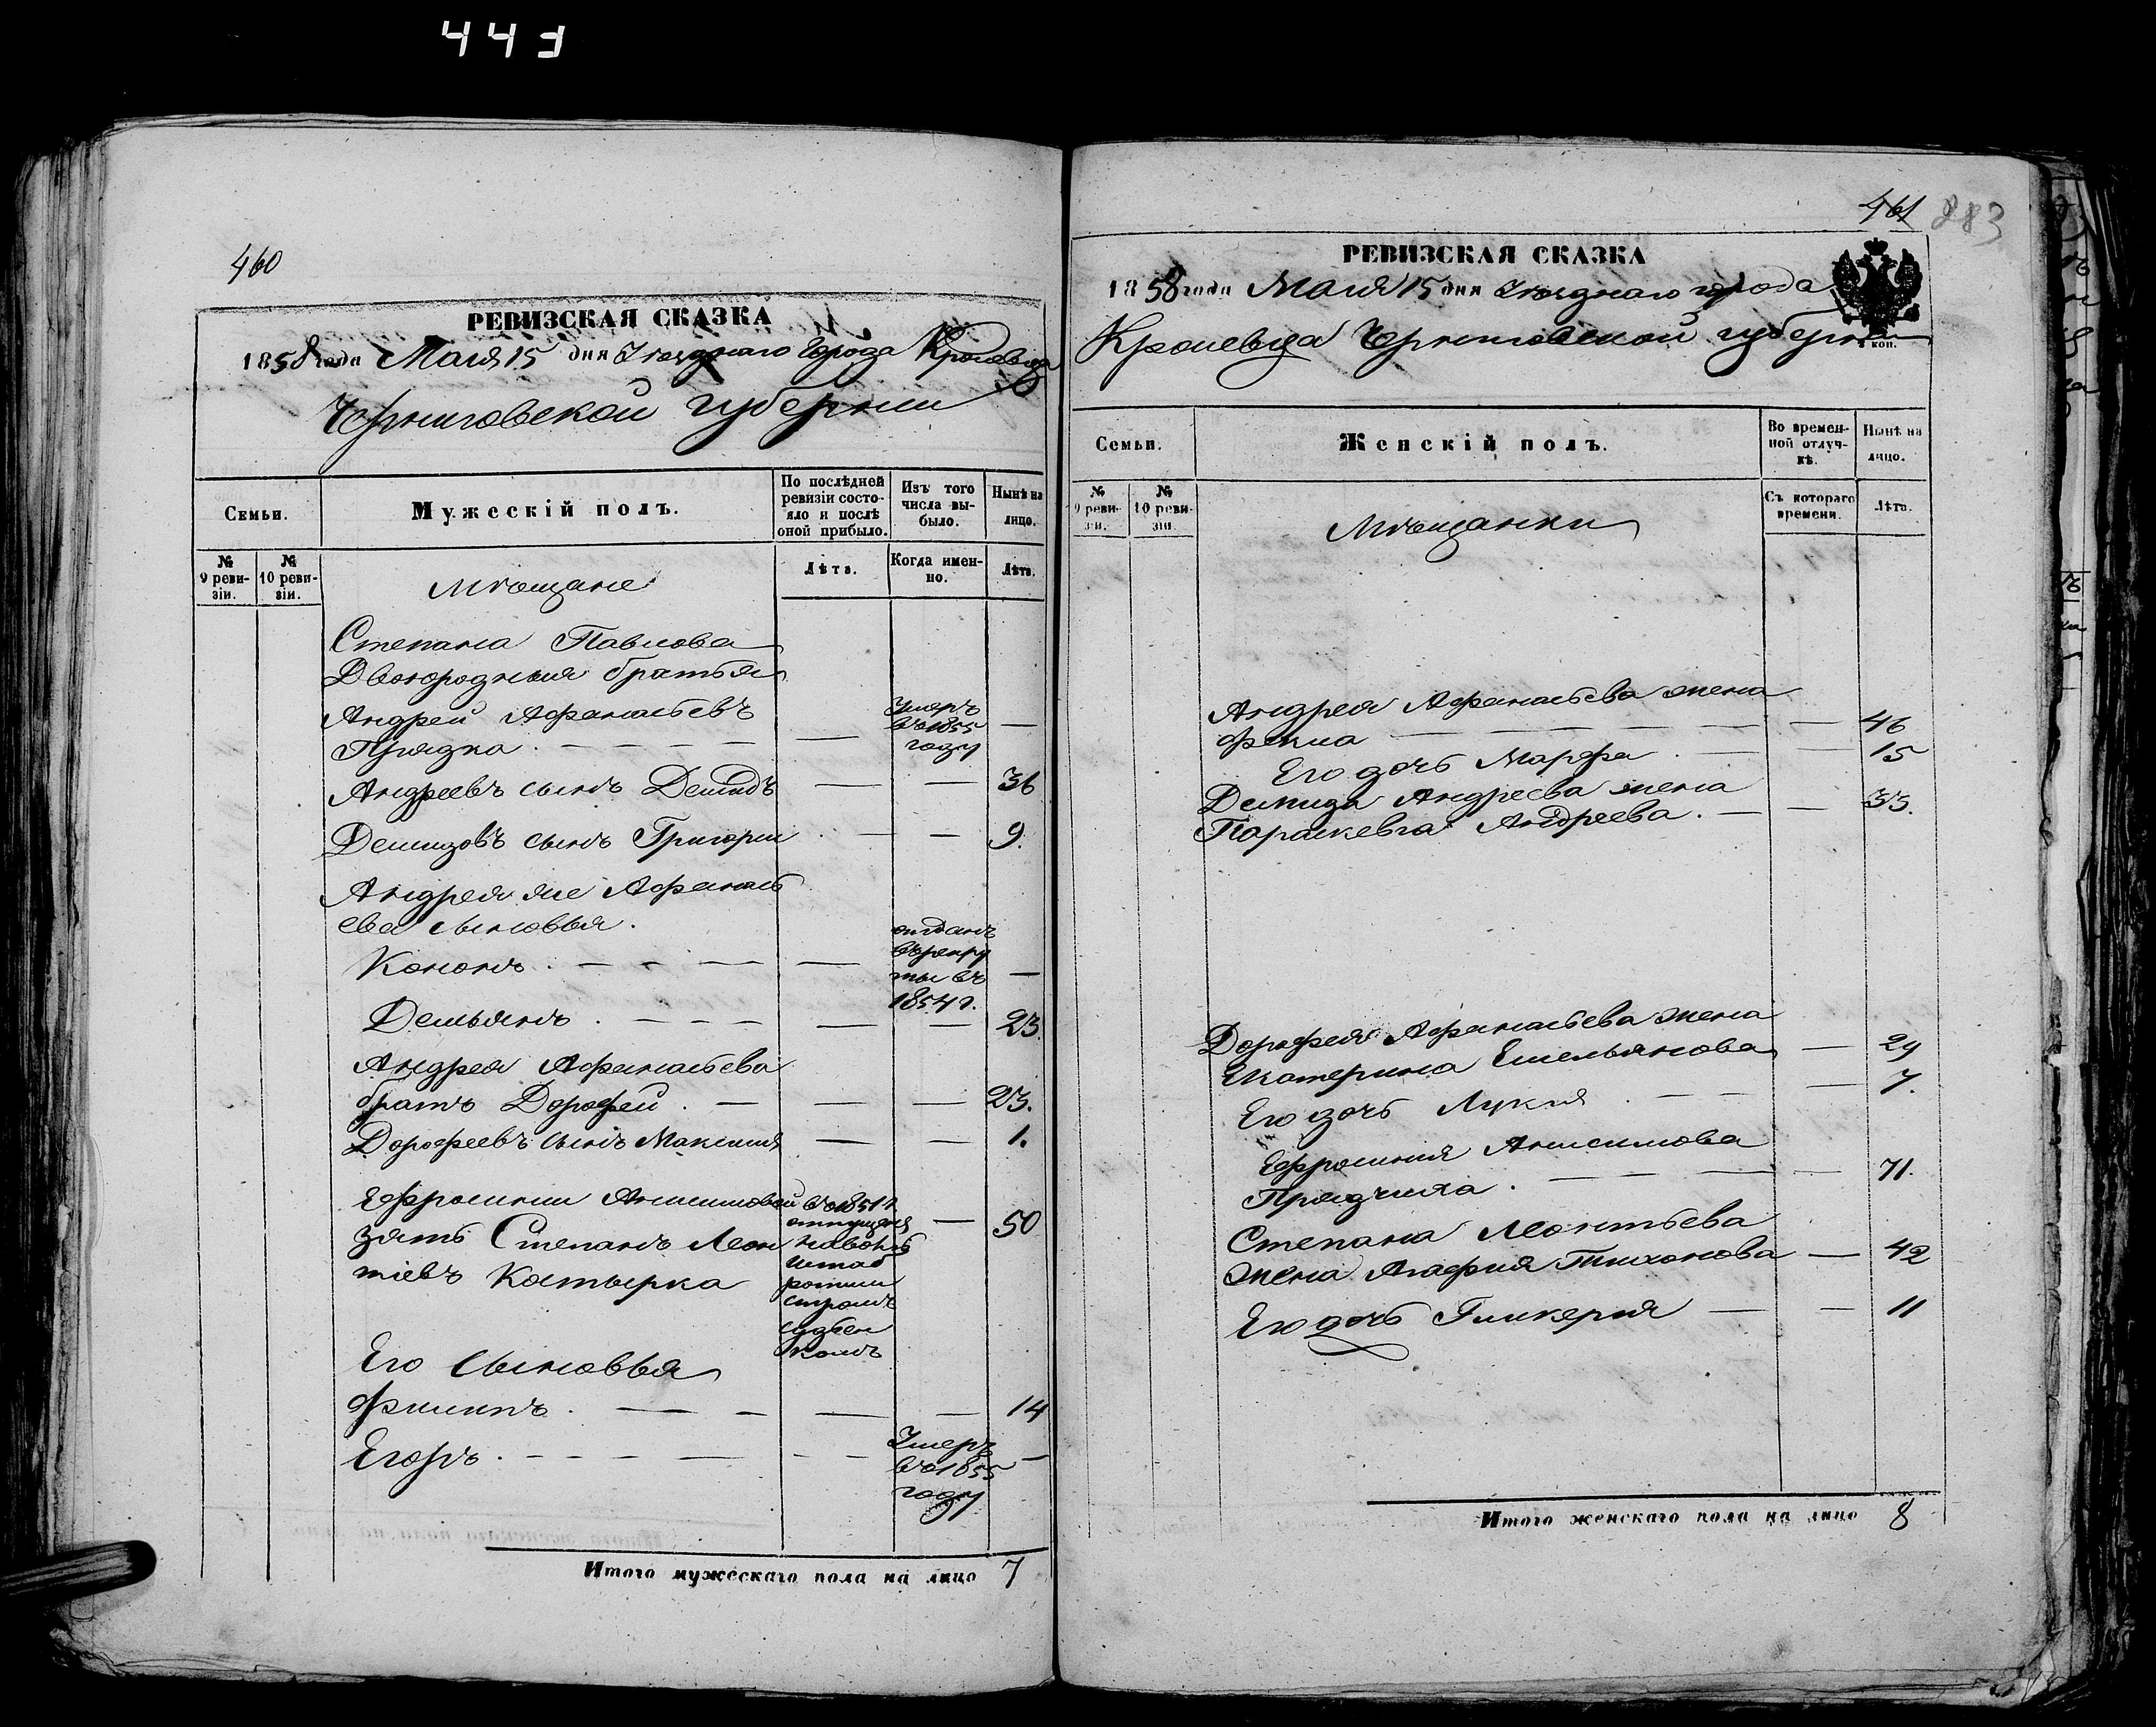 443
460
РЕВИЗСКАЯ СКАЗКА
1858 года Маія 15 дня Уѣзднаго города Кролевца
Черниговской губерніи
Семьи.
Мужескій полъ.
По послѣдней ревизіи состояло и послѣ оной прибыло.
Изъ того числа выбыло.
Нынѣ на лицо.
№ 9 ревизіи.
№ 10 ревизіи.
Мѣщане
Лѣта.
Когда именно.
Лѣта.
Степана Павлова
Двоюродныя братья
Андрей Афанасьевъ
Прядка . — — — — — Умеръ въ 1855 году —
Андреевъ сынъ Демидъ — — 36
Демидовъ сынъ Григорій . — — 9.
Андрея же Афанась
ева сыновья.
Кононъ . — — — — — отданъ въ рекру ты въ 1854 г. —
Демьянъ . — — — — — 23.
Андрея Афанасьева
братъ Дорофей . — — — 23.
Дорофеевъ сынъ Максимъ — — 1.
Ефросиніи Анисимовой
зять Степанъ Леон
тіевъ Костырка
въ 1851 г. отпущенъ на волю штаб ротми стромъ — 50
Его сыновья
Филипъ . — — — — — 14
Егоръ . — — — — — — Умеръ въ 1855 году —
Итого мужескаго пола на лицо 7
461 283
РЕВИЗСКАЯ СКАЗКА
1858 года Маія 15 дня Уѣзднаго города
Кролевца Черниговской губерніи
коп.
Семьи.
Женскій полъ.
Во временной отлучкѣ.
Нынѣ на лицо.
№ 9 ревизіи.
№ 10 ревизіи.
Мѣщанки
Съ котораго времени.
Лѣта.
Андрея Афанасьева жена
Фекла — — — — — — 46
Его дочь Марфа . — — 15
Демида Андреева жена
Параскевія Андреева . — — 33.
Дорофея Афанасьева жена
Екатерина Емельянова — 29
Его дочь Лукія . — — — 7.
Ефросинія Анисимова
Прядчиха . — — — — 71.
Степана Леонтьева
жена Агафия Тихонова — 42
Его дочь Гликерія — — 11
Итого женскаго пола на лицо 8